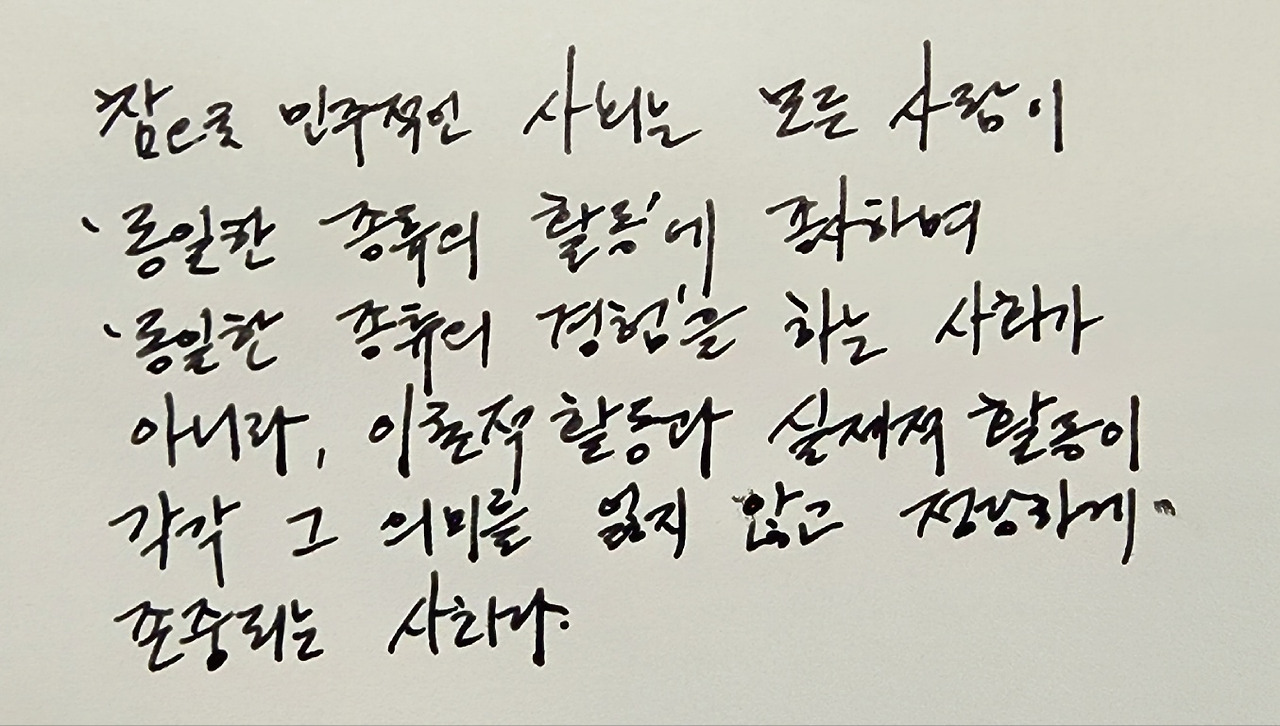 참으로 민주적인 사회는 모든 사람이
'동일한 종류의 활동'에 종사하며
'동일한 종류의 경험'을 하는 사회가
아니라, 이론적 활동과 실제적 활동이
각각 그 의미를 잃지 않고 정당하게
존중되는 사회다.